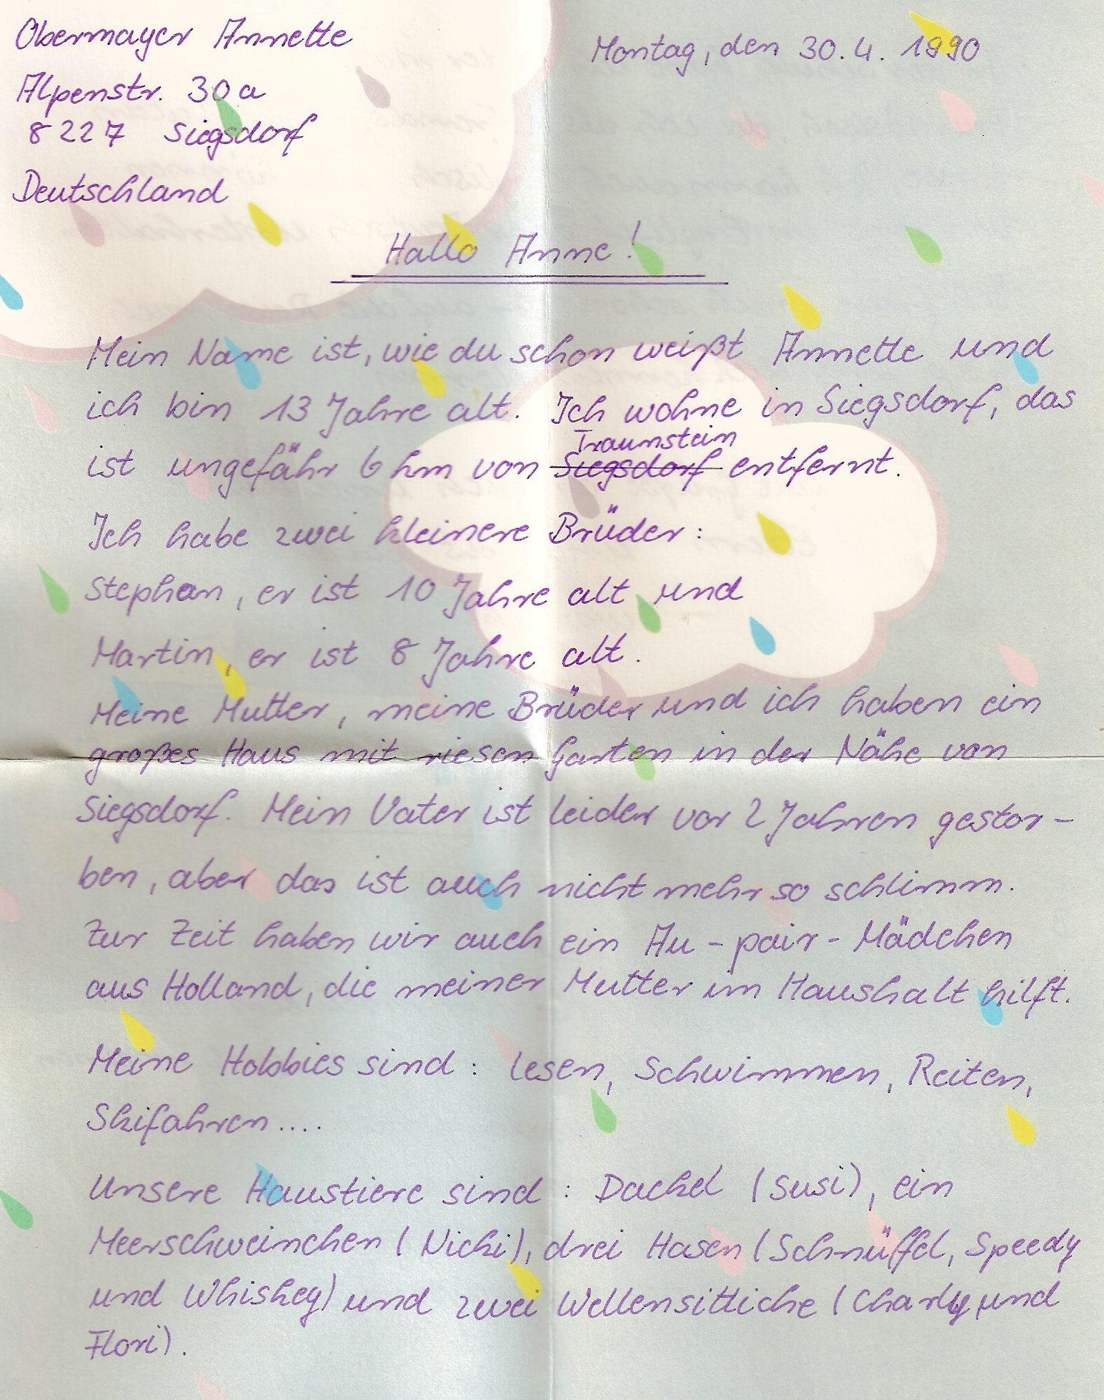 Obermayer Annette
Montag, den 30.4. 1990
Alpenstr. 30a
8227 Siegsdorf
Deutschland
Hallo Anne!
Mein Name ist, wie du schon weißt Annette und
ich bin 13 Jahre alt. Ich wohne in Siegsdorf, das
Traunstein
ist ungefähr 6 km von Siegsdorf entfernt.
Ich habe zwei kleinere Brüder:
Stephan, er ist 10 Jahre alt und
Martin, er ist 8 Jahre alt.
Meine Mutter, meine Brüder und ich haben ein
großes Haus mit riesen Garten in der Nähe von
Siegsdorf. Mein Vater ist leider vor 2 Jahren gestor-
ben, aber das ist auch nicht mehr so schlimm.
Zur Zeit haben wir auch ein Au-pair-Mädchen
aus Holland, die meiner Mutter im Haushalt hilft.
Meine Hobbies sind: Lesen, Schwimmen, Reiten,
Skifahren....
Unsere Haustiere sind: Dackel (Susi), ein
Meerschweinchen (Nicki), drei Hasen (Schnüffel, Speedy
und Whiskey) und zwei Wellensittiche (Charly und
Flori).